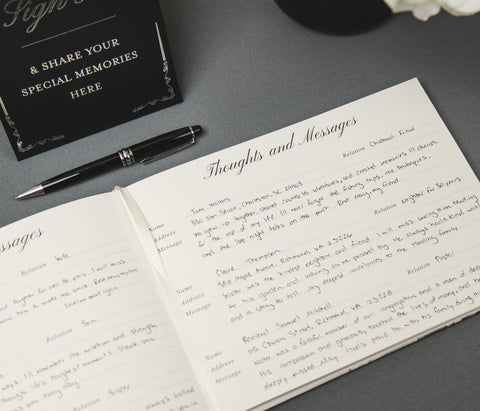 Sign
& SHARE YOUR
SPECIAL MEMORIES
HERE
Messages
Relation Wife
I will miss
make me smile. Rest
Relation Son
I'll remember the wisdom and strength
through life's toughest moments. Thank you
every day.
Relation Sister
always
Thoughts and Messages
Relation Childhood Friend
Name Tom Willis
Address Elm Street, Charleston, SC
Message We grew up together, shared countless adventures, and created memories I'll cherish
for the rest of my life. I'll never forget the fishing trips, the barbeques,
and the late night talks on the porch. Rest easy, my friend
Relation Neighbor for 30 years
Name Claire Thompson
Address 920 Maple Avenue, Richmond, VA 23226
Message Walter was the kindest neighbor and friend. I will miss seeing him tending
to his garden and waving as we passed by. He always had a kind word
and a story to tell. My deepest condolences to the family
Relation Pastor
Name Reverend Samuel Mitchell
Address 115 Church Street, Richmond, VA 23228
Message Walter was a faithful member of our congregation and a man of deep
His compassion and generosity touched the lives of many, and he
deeply missed. May God's peace be with his family during